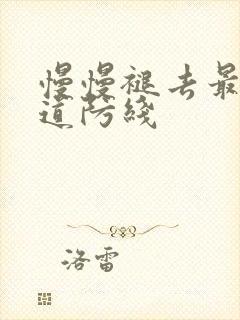 慢慢褪去最
道防线
洛雷